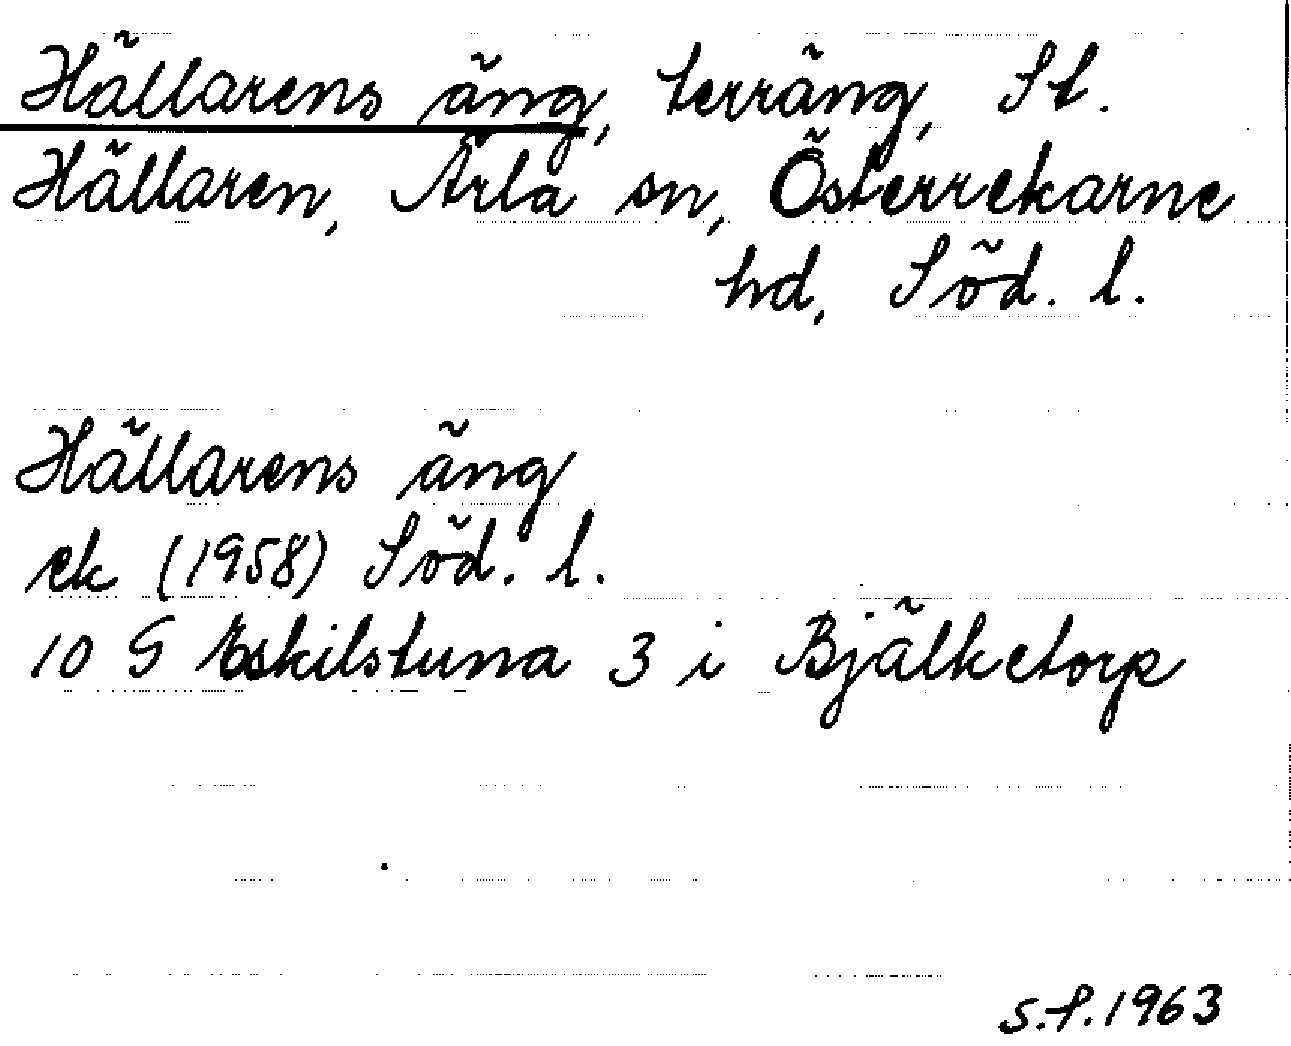 Hällarens äng, terräng, St.
Hällaren, Ärla sn, Österrekarne
hd, Söd. l.
Hällarens äng
ek (1958) Söd. l.
10 G Eskilstuna 3 i Bjälketorp
S.f. 1963